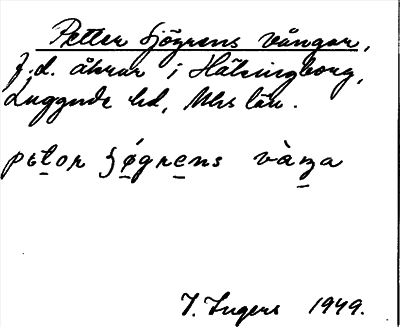 Petter Sjögrens vångar,
f.d. åkrar i Hälsingborg,
Luggude hd, Mhs län.
petor ʃǿgrens vàŋa
I. Ingers 1949.